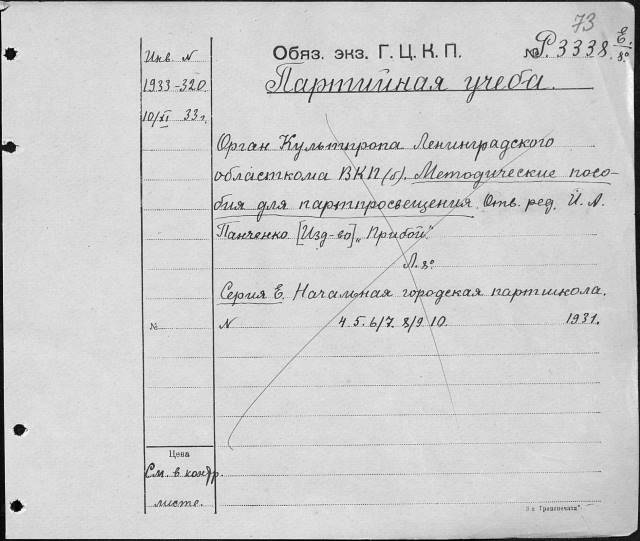 73
Обяз. экз. Г.Ц.К.П. № Р.3338. Е/8º
Партийная учеба.
Инв. N
1933-320
10/XI 33 г.
Орган Культпропа Ленинградского
областкома ВКП(б). Методические посо-
бия для партпросвещения. Отв. ред. И. А.
Панченко [Изд-во] „Прибой".
Л. 8º
Серия Е. Начальная городская партшкола.
№ N 4 5. 6/7. 8/9 10. 1931.
Цена
См. в контр.
листе.